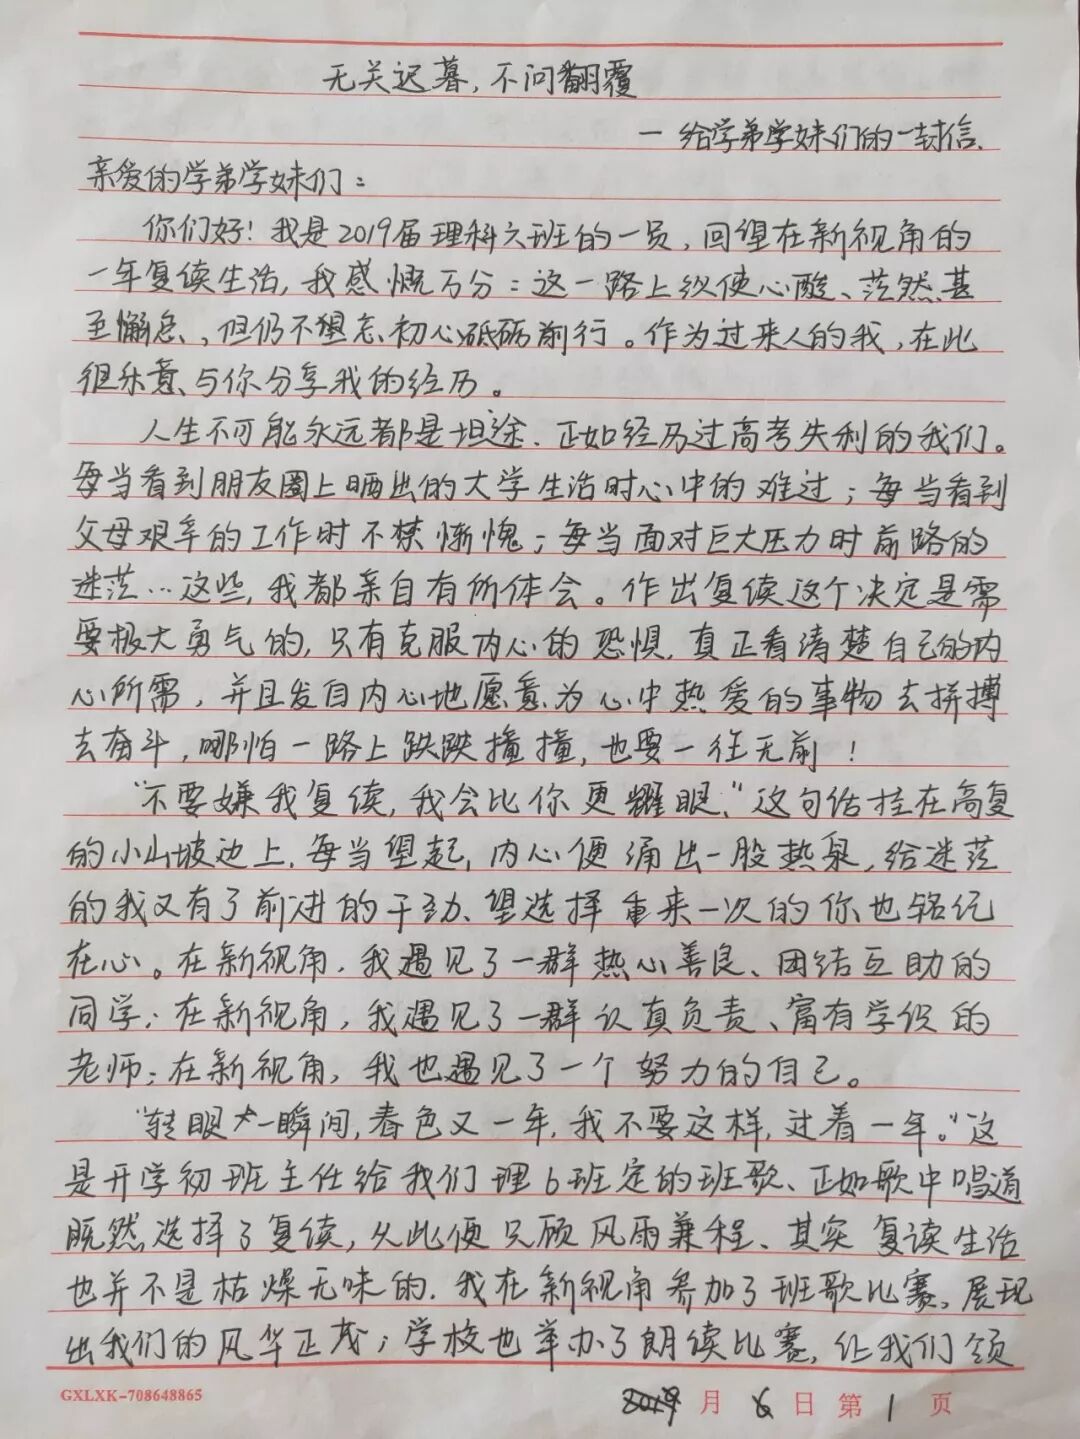 无关迟暮,不问翻覆
—给学弟学妹们的一封信.
亲爱的学弟学妹们:
你们好!我是2019届理科六班的一员,回望在新视角的
一年复读生活,我感慨万分:这一路上纵使心酸、茫然甚
至懈怠,但仍不想忘初心砥砺前行。作为过来人的我,在此
很乐意与你分享我的经历。
人生不可能永远都是坦途.正如经历过高考失利的我们。
每当看到朋友圈上晒出的大学生活时心中的难过;每当看到
父母艰辛的工作时不禁惭愧;每当面对巨大压力时前路的
迷茫…这些,我都亲自有所体会。作出复读这个决定是需
要极大勇气的,只有克服内心的恐惧,真正看清楚自己的内
心所需,并且发自内心地愿意为心中热爱的事物去拼搏
去奋斗,哪怕一路上跌跌撞撞,也要一往无前!
“不要嫌我复读,我会比你更耀眼.”这句话挂在高复
的小山坡边上.每当望起,内心便涌出一股热泉,给迷茫
的我又有了前进的干劲、望选择重来一次的你也铭记
在心。在新视角,我遇见了一群热心善良、团结互助的
同学;在新视角,我遇见了一群认真负责、富有学识的
老师;在新视角,我也遇见了一个努力的自己。
“转眼一瞬间,春色又一年,我不要这样,过着一年。”这
是开学初班主任给我们理6班定的班歌、正如歌中唱道
既然选择了复读,从此便只顾风雨兼程、其实复读生活
也并不是枯燥无味的.我在新视角参加了班歌比赛,展现
出我们的风华正茂;学校也举办了朗读比赛,让我们领
GXLXK-708648865
2019月6日第1页